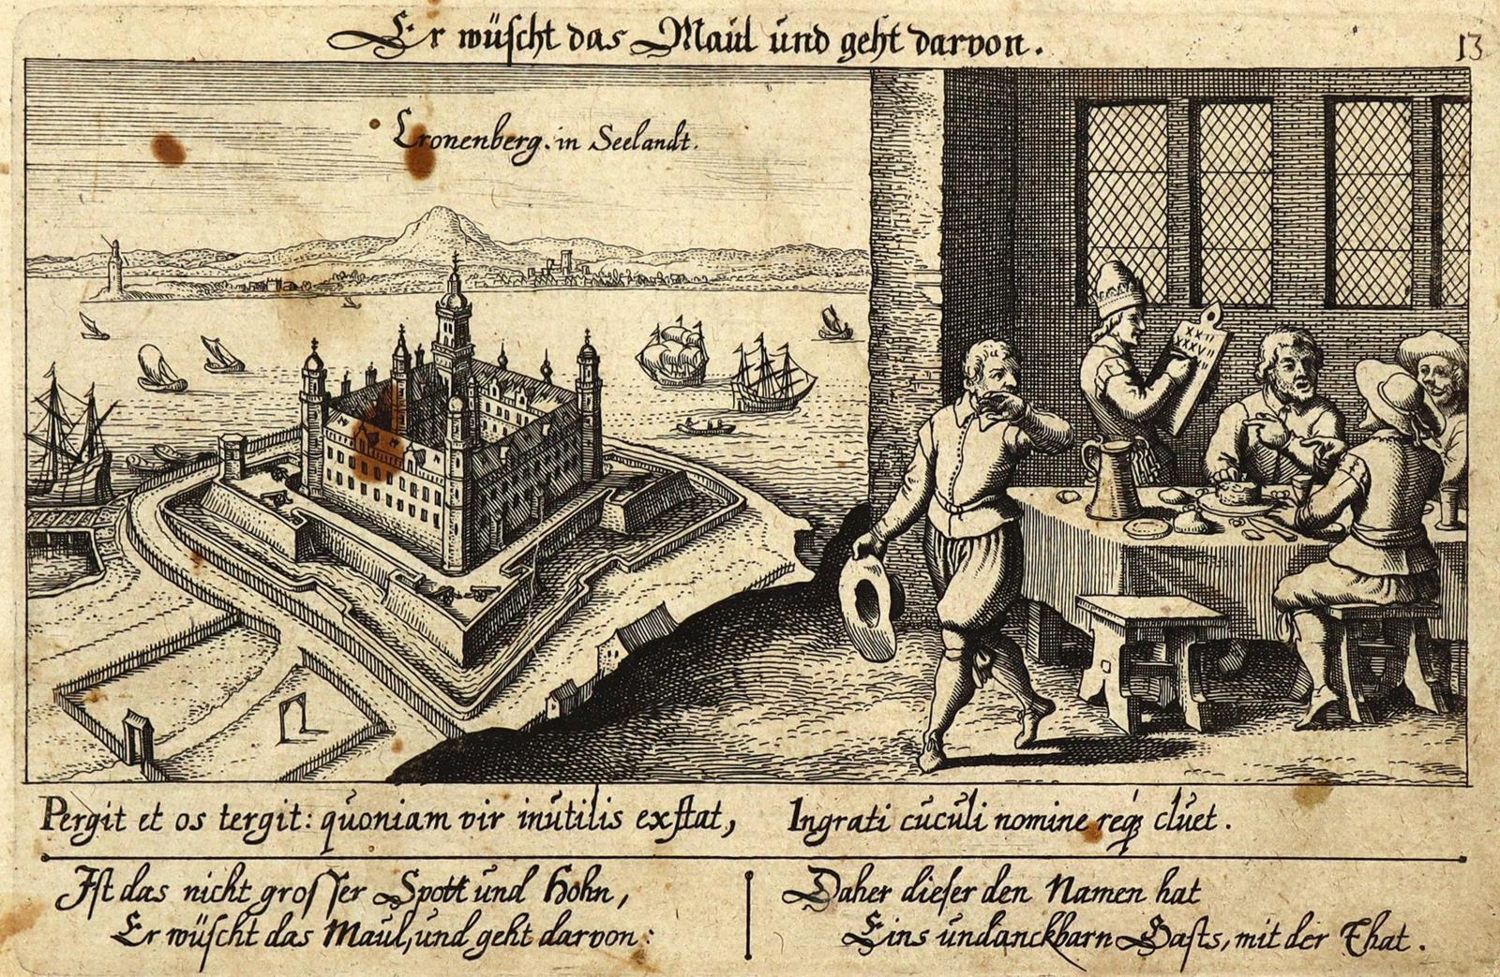 Er wüſcht das Maul und geht darvon.
13
Cronenberg. in Seelandt.
XXII
XXXVII
Pergit et os tergit: quoniam vir inutilis exſtat, Ingrati cuculi nomine req; cluet.
Iſt das nicht groſſer Spott und Hohn,
Er wüſcht das Maul, und geht darvon:
Daher dieſer den Namen hat
Eins undanckbarn Gaſts, mit der That.